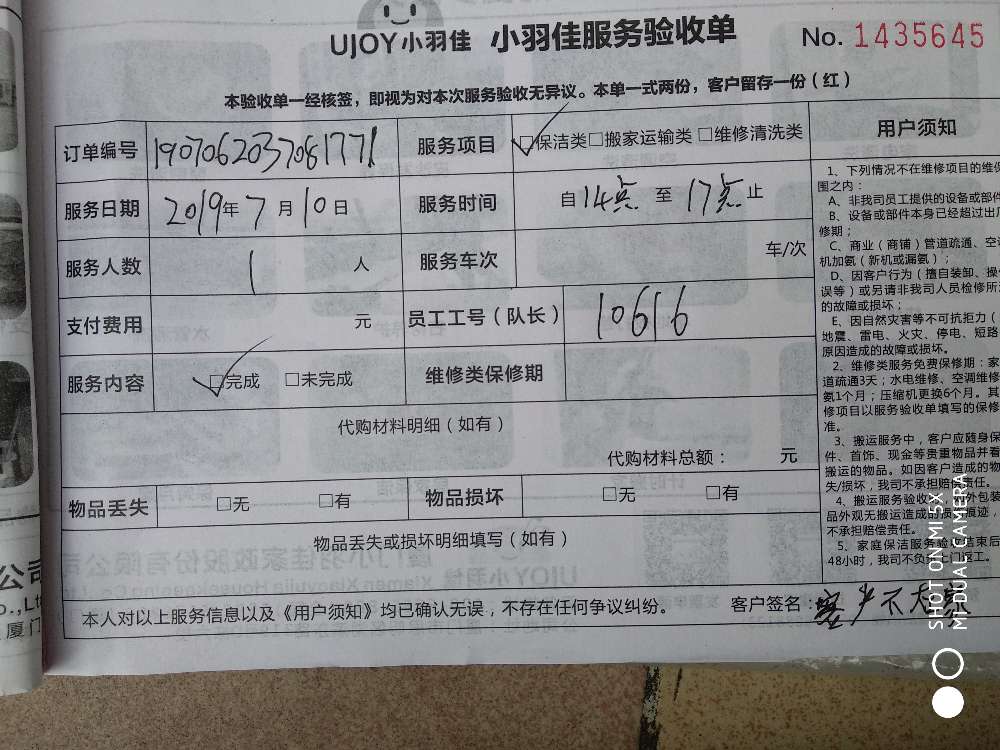 UJOY小羽佳 小羽佳服务验收单 No. 1435645
本验收单一经核签，即视为对本次服务验收无异议。本单一式两份，客户留存一份（红）
订单编号 190706203708 1771 服务项目 ☑保洁类□搬家运输类 □维修清洗类
服务日期 2019年7月10日 服务时间 自14点 至 17点止
服务人数 1 人 服务车次 车/次
支付费用 元 员工工号（队长） 10616
服务内容 ☑完成 □未完成 维修类保修期
代购材料明细（如有）
代购材料总额： 元
物品丢失 □无 □有 物品损坏 □无 □有
物品丢失或损坏明细填写（如有）
本人对以上服务信息以及《用户须知》均已确认无误，不存在任何争议纠纷。 客户签名：客户不在家
用户须知
1、下列情况不在维修项目的维保
围之内：
A、非我司员工提供的设备或部件
B、设备或部件本身已经超过出厂
修期；
C、商业（商铺）管道疏通、空
机加氨（新机或漏氨）；
D、因客户行为（擅自装卸、操
误等）或另请非我司人员检修所
的故障或损坏；
E、因自然灾害等不可抗拒力（
地震、雷电、火灾、停电、短路
原因造成的故障或损坏。
2、维修类服务免费保修期：家
道疏通3天；水电维修、空调维修
氨1个月；压缩机更换6个月。其
修项目以服务验收单填写的保修
准。
3、搬运服务中，客户应随身保
件、首饰、现金等贵重物品并看
搬运的物品。如因客户造成的物
失/损坏，我司不承担赔偿责任。
4、搬运服务验收 外包装
品外观无搬运造成的损 痕迹，
不承担赔偿责任。
5、家庭保洁服务验收结束后
48小时，我司不负责上门返工。
公司
o.,Ltd
厦门
SHOT ON MI 5X
MI DUAL CAMERA